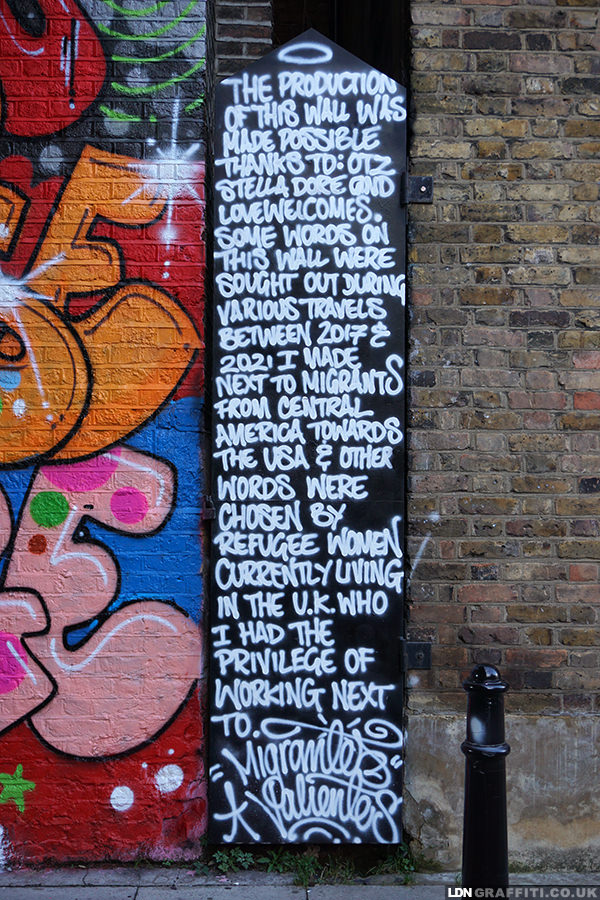 THE PRODUCTION
OF THIS WALL WAS
MADE POSSIBLE
THANKS TO: OTZ
STELLA DORE AND
LOVEWELCOMES.
SOME WORDS ON
THIS WALL WERE
SOUGHT OUT DURING
VARIOUS TRAVELS
BETWEEN 2017 &
2021 I MADE
NEXT TO MIGRANTS
FROM CENTRAL
AMERICA TOWARDS
THE USA & OTHER
WORDS WERE
CHOSEN BY
REFUGEE WOMEN
CURRENTLY LIVING
IN THE U.K. WHO
I HAD THE
PRIVILEGE OF
WORKING NEXT
TO.
"Migrantes
Valientes"
LDNGRAFFITI.CO.UK